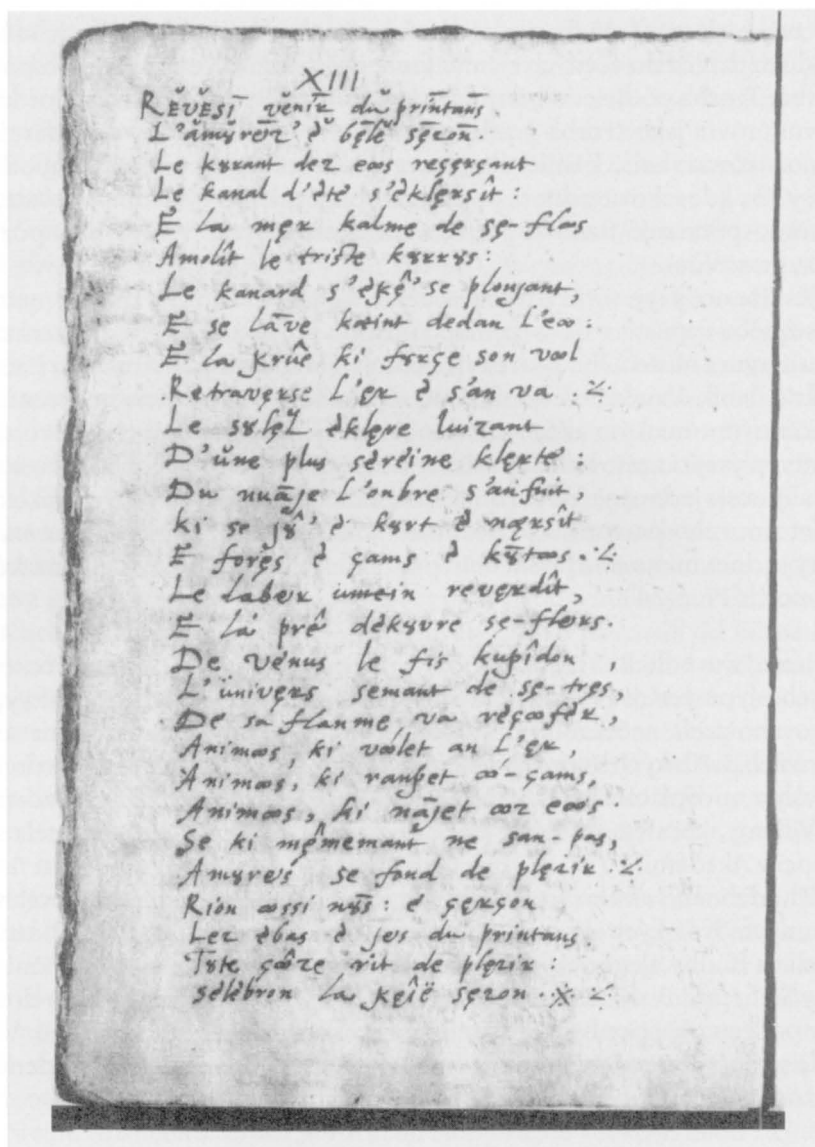 XIII
RĔVĔSI̅ vĕni̅r dŭ prin̅tans̅
L'ămȣrĕuz' ĕ̀ bęl̆e sęzo̅n.
Le kȣrant dez eꞷs reçęrçant
Le kanal d'ète s'èklęrsît :
È la męr kalme de sę-flꞷs
Amolît le triste kȣrrȣs :
Le kanard s'ègę̂' se plonjant,
È se lāve kꞷint dedan l'eꞷ :
È la grûe ki fȣrçe son vꞷl
Retravęrse l'ęr è s'an va ⁖
Le sȣlęl̃ èklęre luizant
D'ŭne plus sèréine klęrte :
Du nuāje l'onbre s'anfuit,
ki se jȣ̂' è kȣrt è nꞷrsît
E foręs è çams è kȣ̄tꞷs ⁖
Le labeur umein revęrdît,
E la prê dèkȣvre se-fleurs.
De vénus le fis kupîdon,
L'univęrs semant de sę-tręs,
De sa flanme va rèçꞷfér,
Animꞷs, ki vꞷlet an l'ęr,
Animꞷs, ki ranpet ꞷ-çams,
Animꞷs, ki nājet ꞷz eꞷs
Se ki mę̂memant ne san-pas,
Amȣreus se fond de plęzir ⁖
Rion ꞷssi nȣs̄ : è çęrçon
Lez èbas è jeus du printans
Tȣte çôze rit de plęzir :
Sèlèbron la gęîe sęzon ⁜